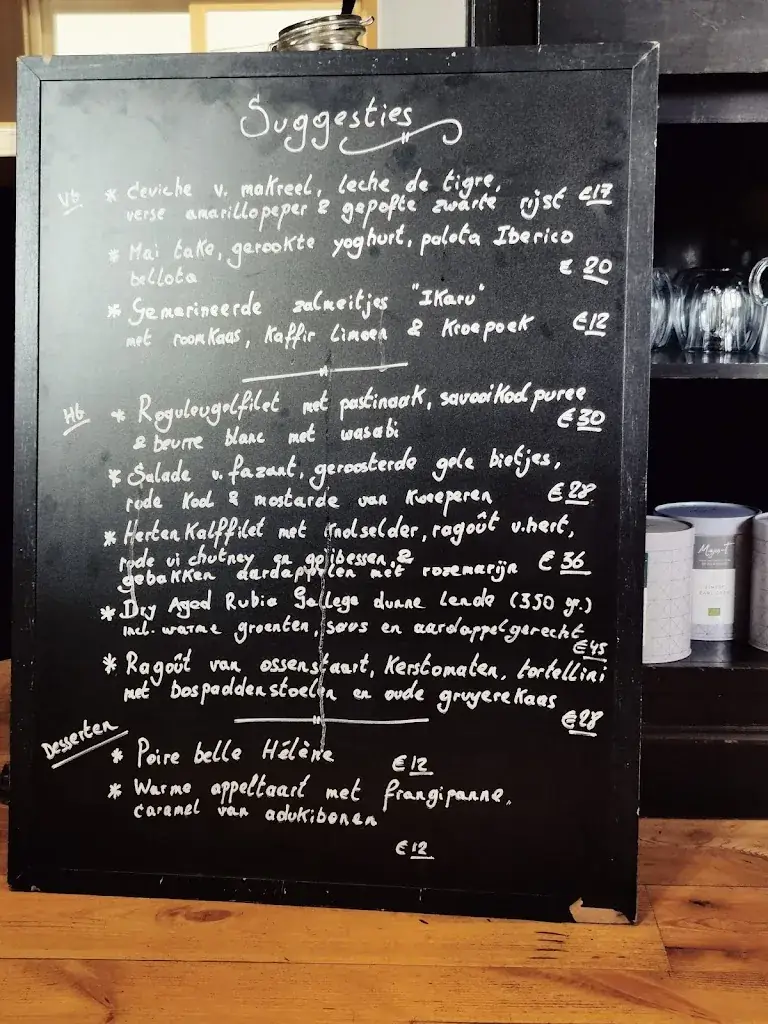 Suggesties
Vg * Ceviche v. makreel, leche de tigre, €17
verse amarillopeper & gepofte zwarte rijst
* Mai take, gerookte yoghurt, paleta Iberico
bellota € 20
* Gemarineerde zalmeitjes "IKaru"
met roomkaas, Kaffir Limoen & Kroepoek €12
Hg * Roguleugelfilet met pastinaak, savooikool puree
& beurre blanc met wasabi €30
* Salade v. fazant, geroosterde gele bietjes,
rode kool & mostarde van kweeperen €28
* Herten Kalffilet met knolselder, ragoût v. hert,
rode ui chutney en gojibessen, &
gebakken aardappelen met rozemarijn € 36
* Dry Aged Rubia Gallega dunne lende (350 gr.)
incl. warme groenten, saus en aardappelgerecht
€45
* Ragoût van ossenstaart, Kerstomaten, tortellini
met bospaddenstoelen en oude gruyere Kaas
€28
Desserten
* Poire belle Hélène €12
* Warme appeltaart met frangipanne,
caramel van adukibonen
€12